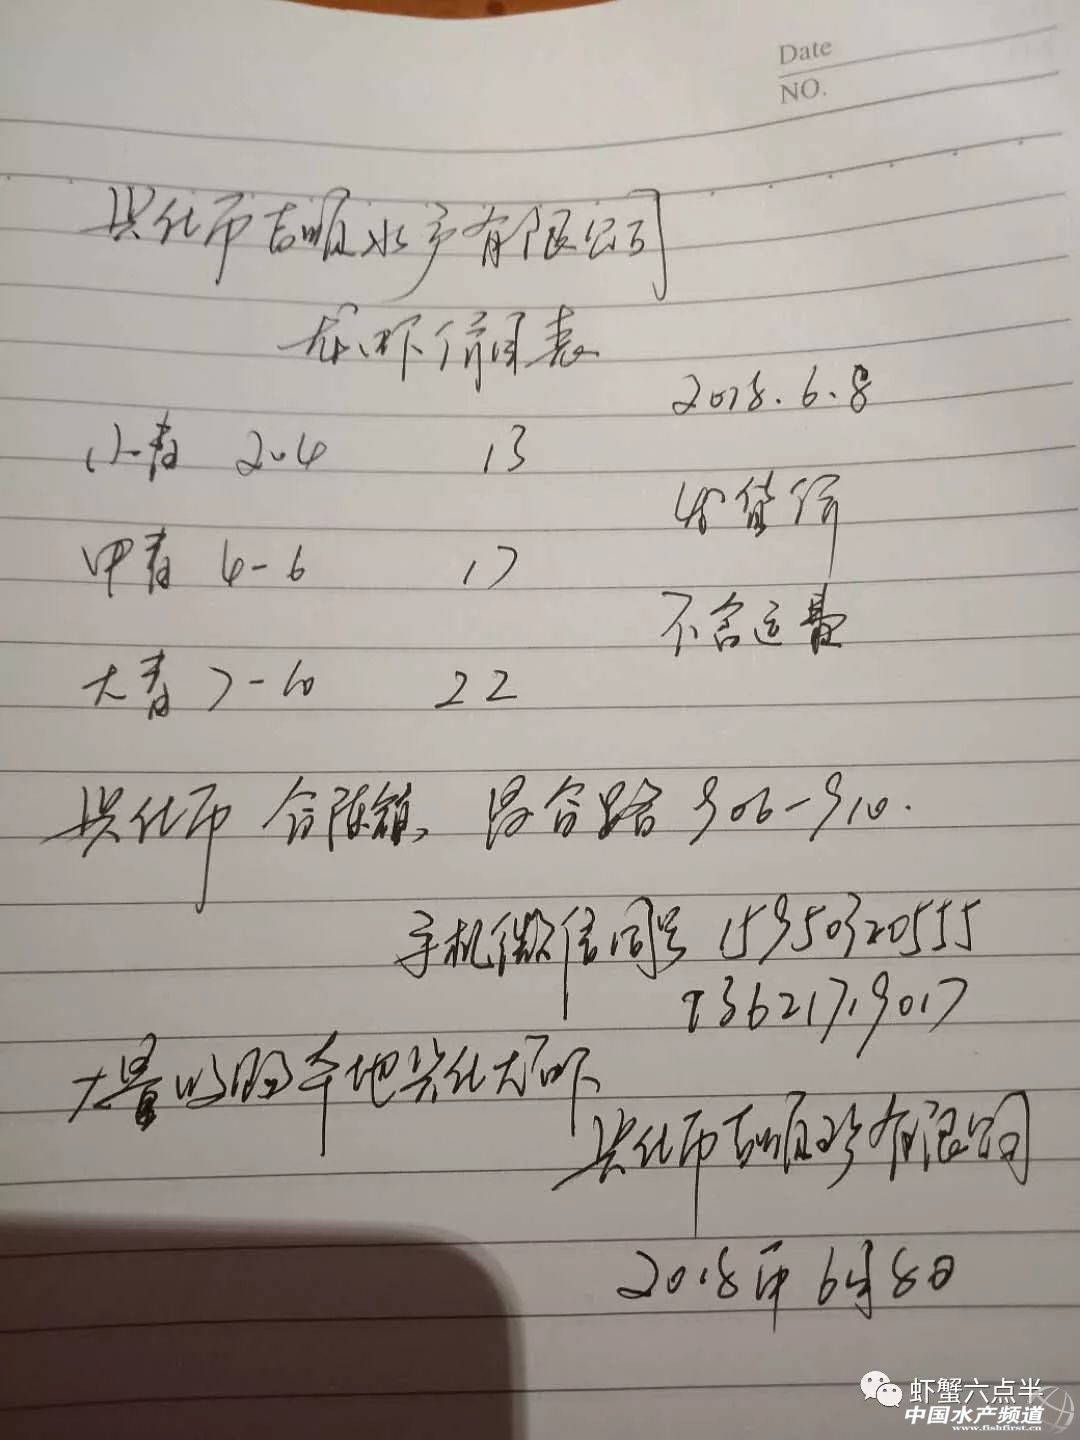 Date
NO.
兴化市吉顺水产有限公司
龙虾价目表
2018.6.8
小青 2-4 13
出货价
中青 4-6 17
不含运费
大青 7-10 22
兴化市 合陈镇, 合路 906-910.
手机微信同号 15950320555
13621719017
大量收购本地兴化龙虾
兴化市吉顺水产有限公司
2018年6月8日
虾蟹六点半
中国水产频道
www.fishfirst.cn